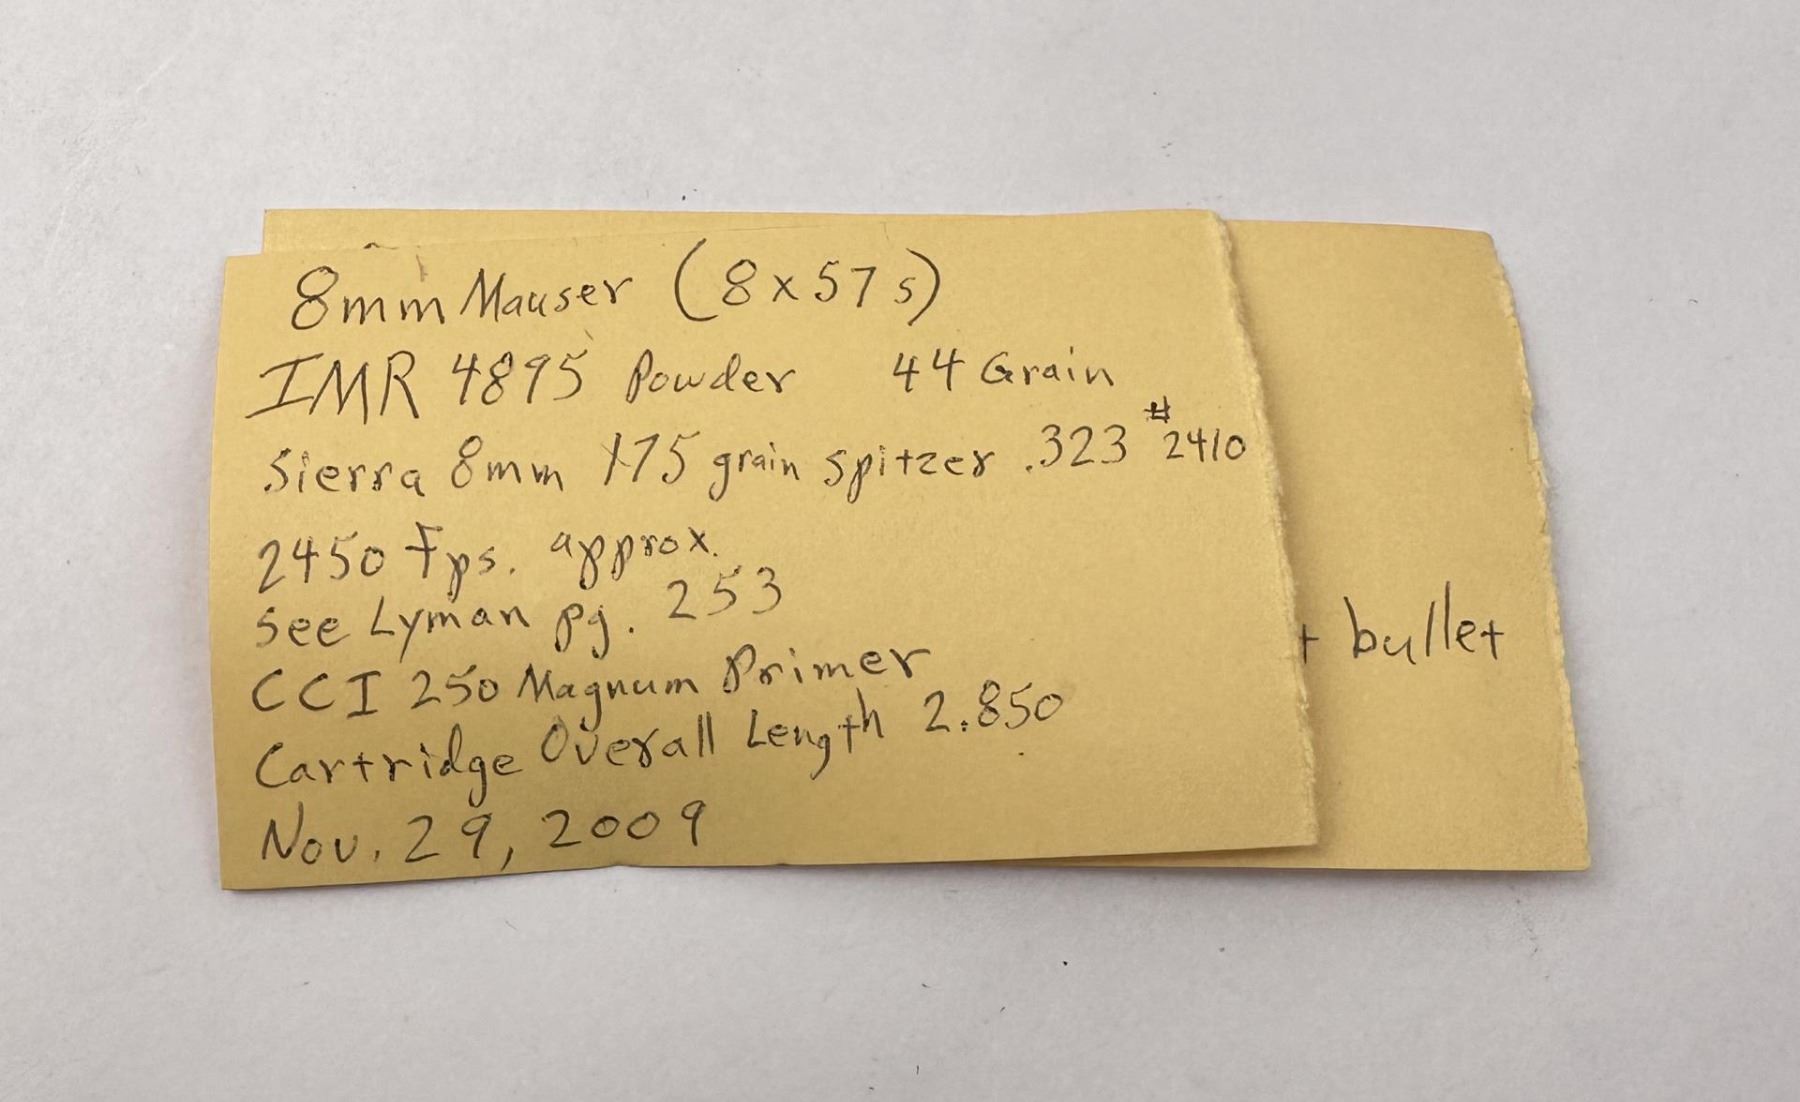 8mm Mauser (8x57s)
IMR 4895 Powder 44 Grain
Sierra 8mm 175 grain spitzer .323 #2410
2450 Fps. approx.
See Lyman pg. 253
CCI 250 Magnum Primer
Cartridge Overall Length 2.850
Nov. 29, 2009
bullet